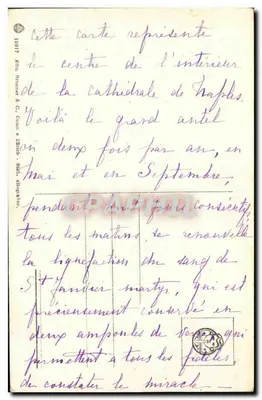 Cette carte représente
le centre de l'intérieur
de la cathédrale de Naples.
Voilà le grand autel
où deux fois par an, en
Mai et en Septembre,
pendant jours consécutifs,
tous les matins se renouvelle
la liquéfaction du sang de
St Janvier martyr, qui est
précieusement conservé en
deux ampoules de verre, qui
permettent à tous les fidèles
de constater le miracle.